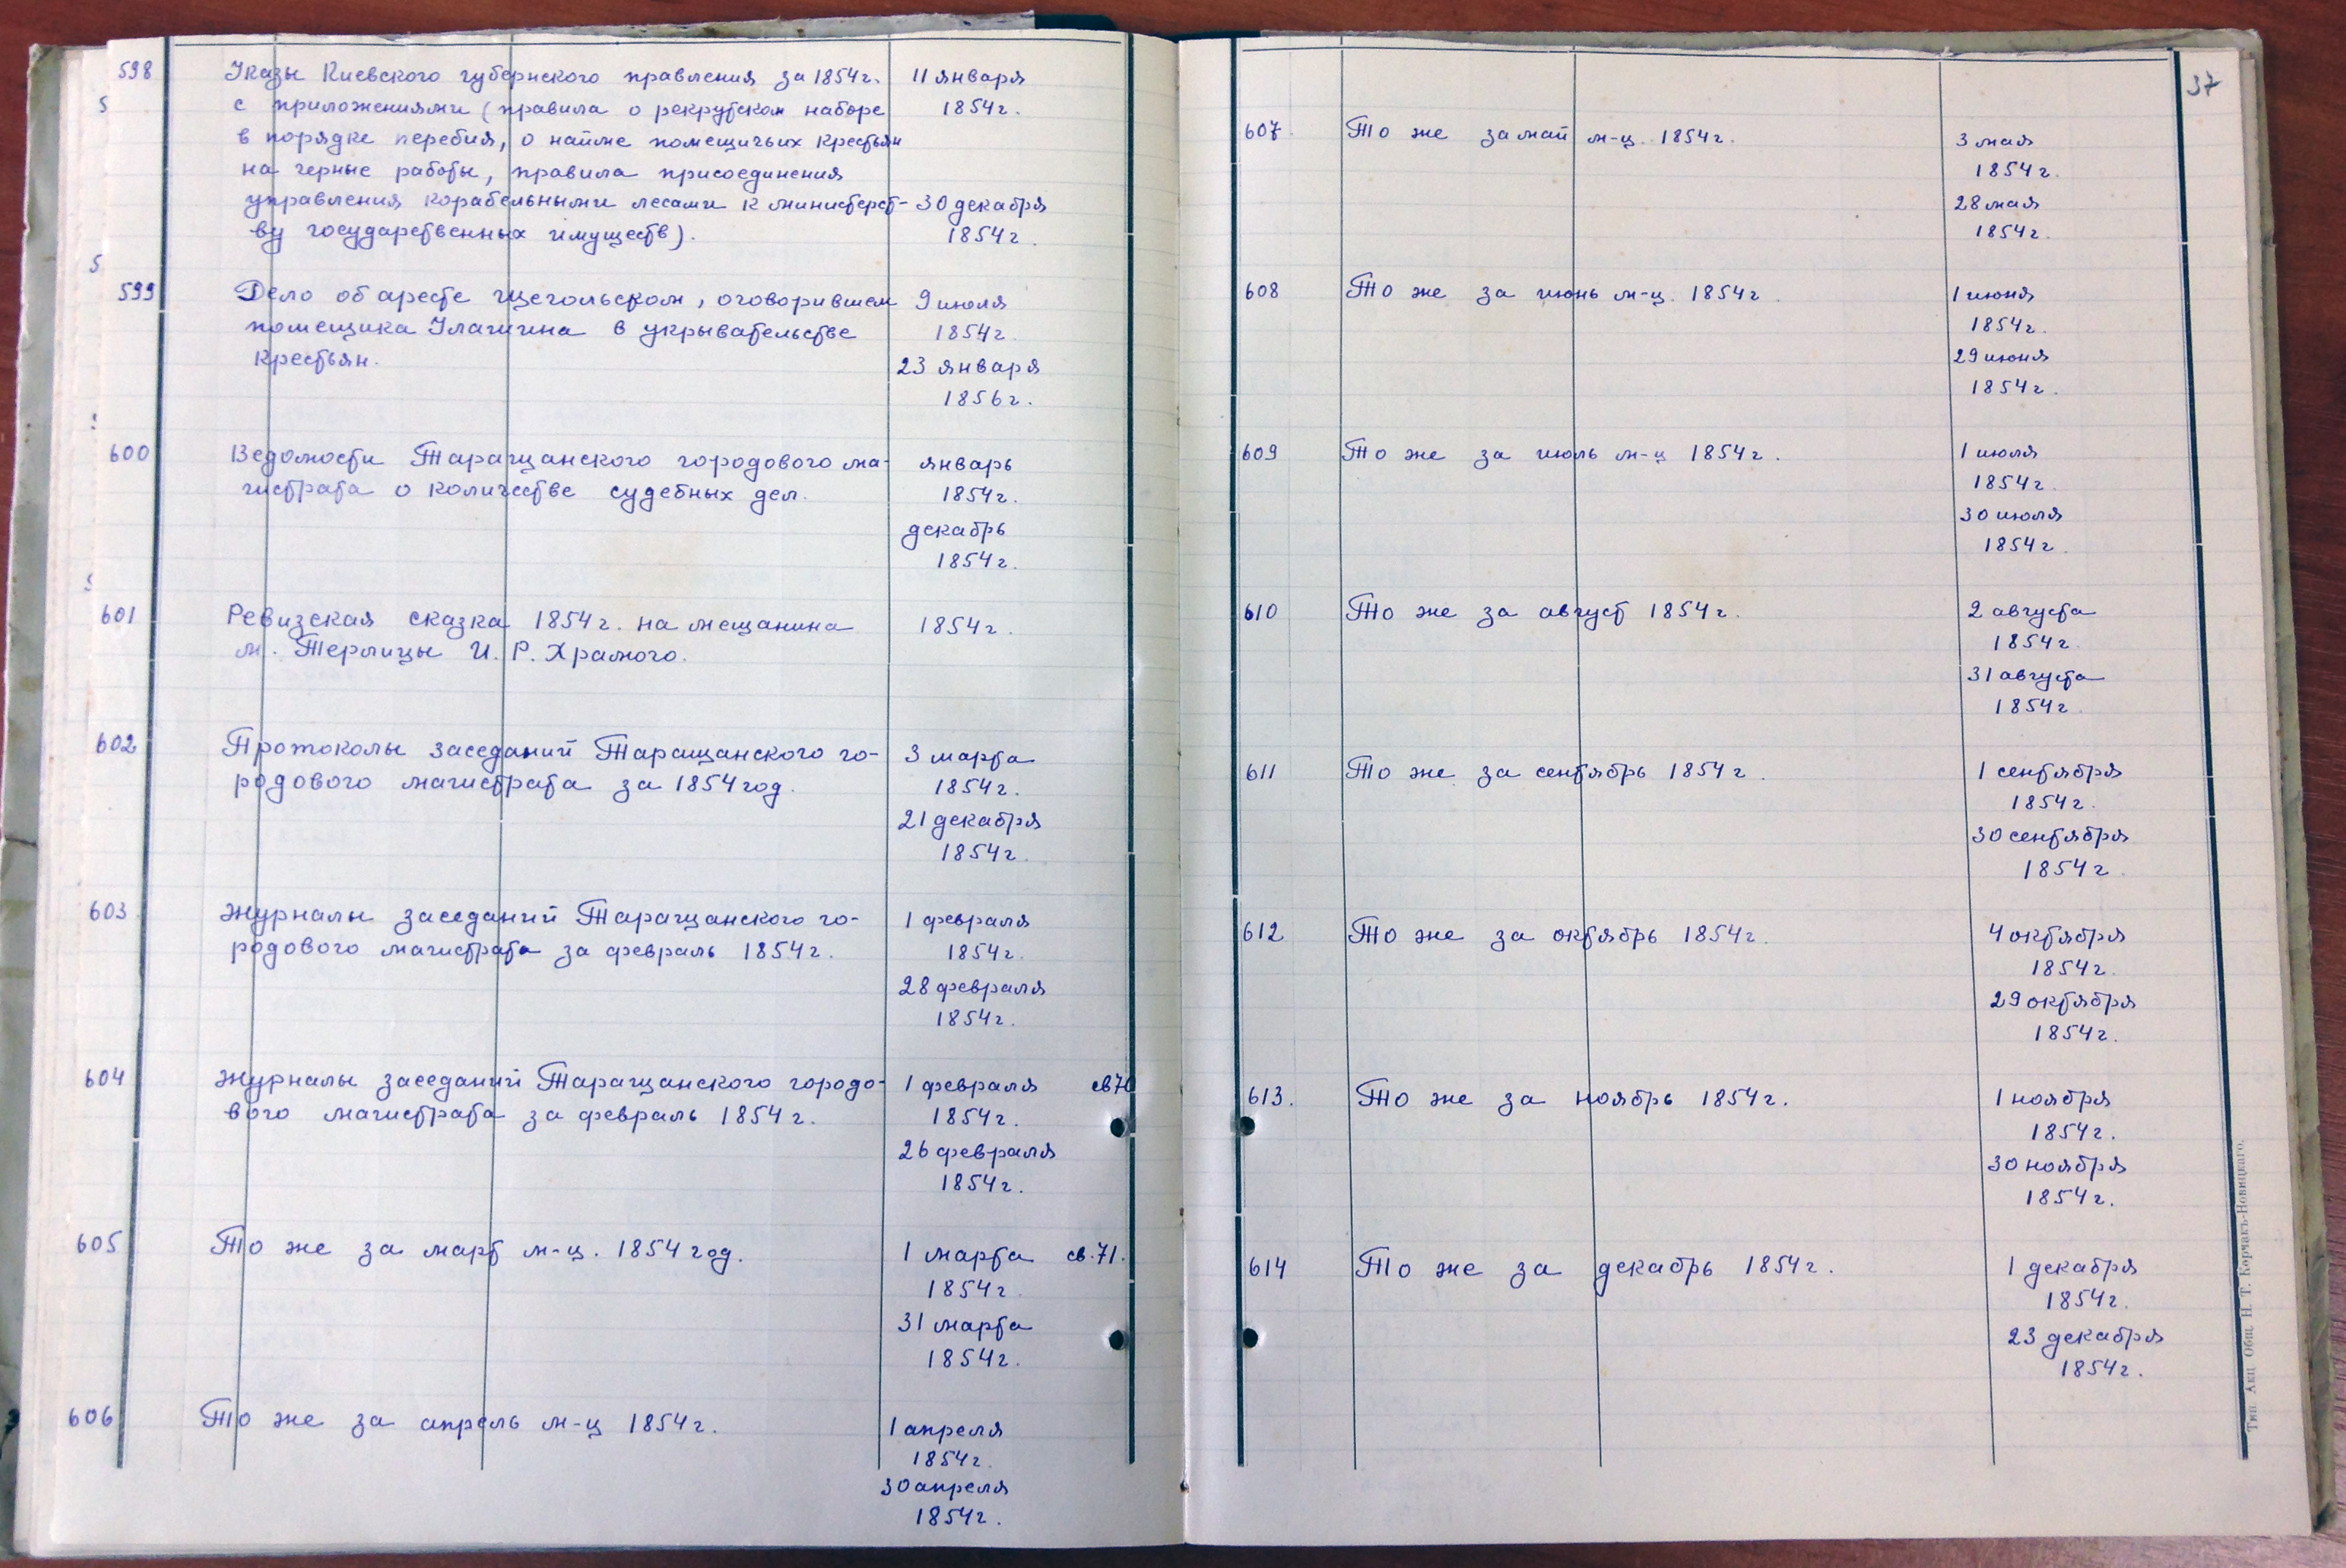 598 Указы Киевского губернского правления за 1854г. 11 января
с приложениями (правила о рекрутском наборе 1854г.
в порядке перебия, о найме помещичьих крестьян
на черные работы, правила присоединения
управления корабельными лесами к министерст- 30 декабря
ву государственных имуществ). 1854г.
599 Дело об аресте Щегольском, оговорившем 9 июля
помещика в укрывательстве 1854г.
крестьян. 23 января
1856г.
600 Ведомости Таращанского городового ма- январь
гистрата о количестве судебных дел. 1854г.
декабрь
1854г.
601 Ревизская сказка 1854г. на мещанина 1854г.
м. Терлицы И. Р. Храмого.
602 Протоколы заседаний Таращанского го- 3 марта
родового магистрата за 1854 год. 1854г.
21 декабря
1854г.
603 Журналы заседаний Таращанского го- 1 февраля
родового магистрата за февраль 1854г. 1854г.
28 февраля
1854г.
604 Журналы заседаний Таращанского городо- 1 февраля св70
вого магистрата за февраль 1854г. 1854г.
26 февраля
1854г.
605 То же за март м-ц. 1854 год. 1 марта св.71.
1854г.
31 марта
1854г.
606 То же за апрель м-ц 1854г. 1 апреля
1854г.
30 апреля
1854г.
37
607 То же за май м-ц. 1854г. 3 мая
1854г.
28 мая
1854г.
608 То же за июнь м-ц. 1854г. 1 июня
1854г.
29 июня
1854г.
609 То же за июль м-ц 1854г. 1 июля
1854г.
30 июля
1854г.
610 То же за август 1854г. 2 августа
1854г.
31 августа
1854г.
611 То же за сентябрь 1854г. 1 сентября
1854г.
30 сентября
1854г.
612 То же за октябрь 1854г. 4 октября
1854г.
29 октября
1854г.
613. То же за ноябрь 1854г. 1 ноября
1854г.
30 ноября
1854г.
614 То же за декабрь 1854г. 1 декабря
1854г.
23 декабря
1854г.
Тип. Акц. Общ. Н. Т. Корчакъ-Новицкаго.